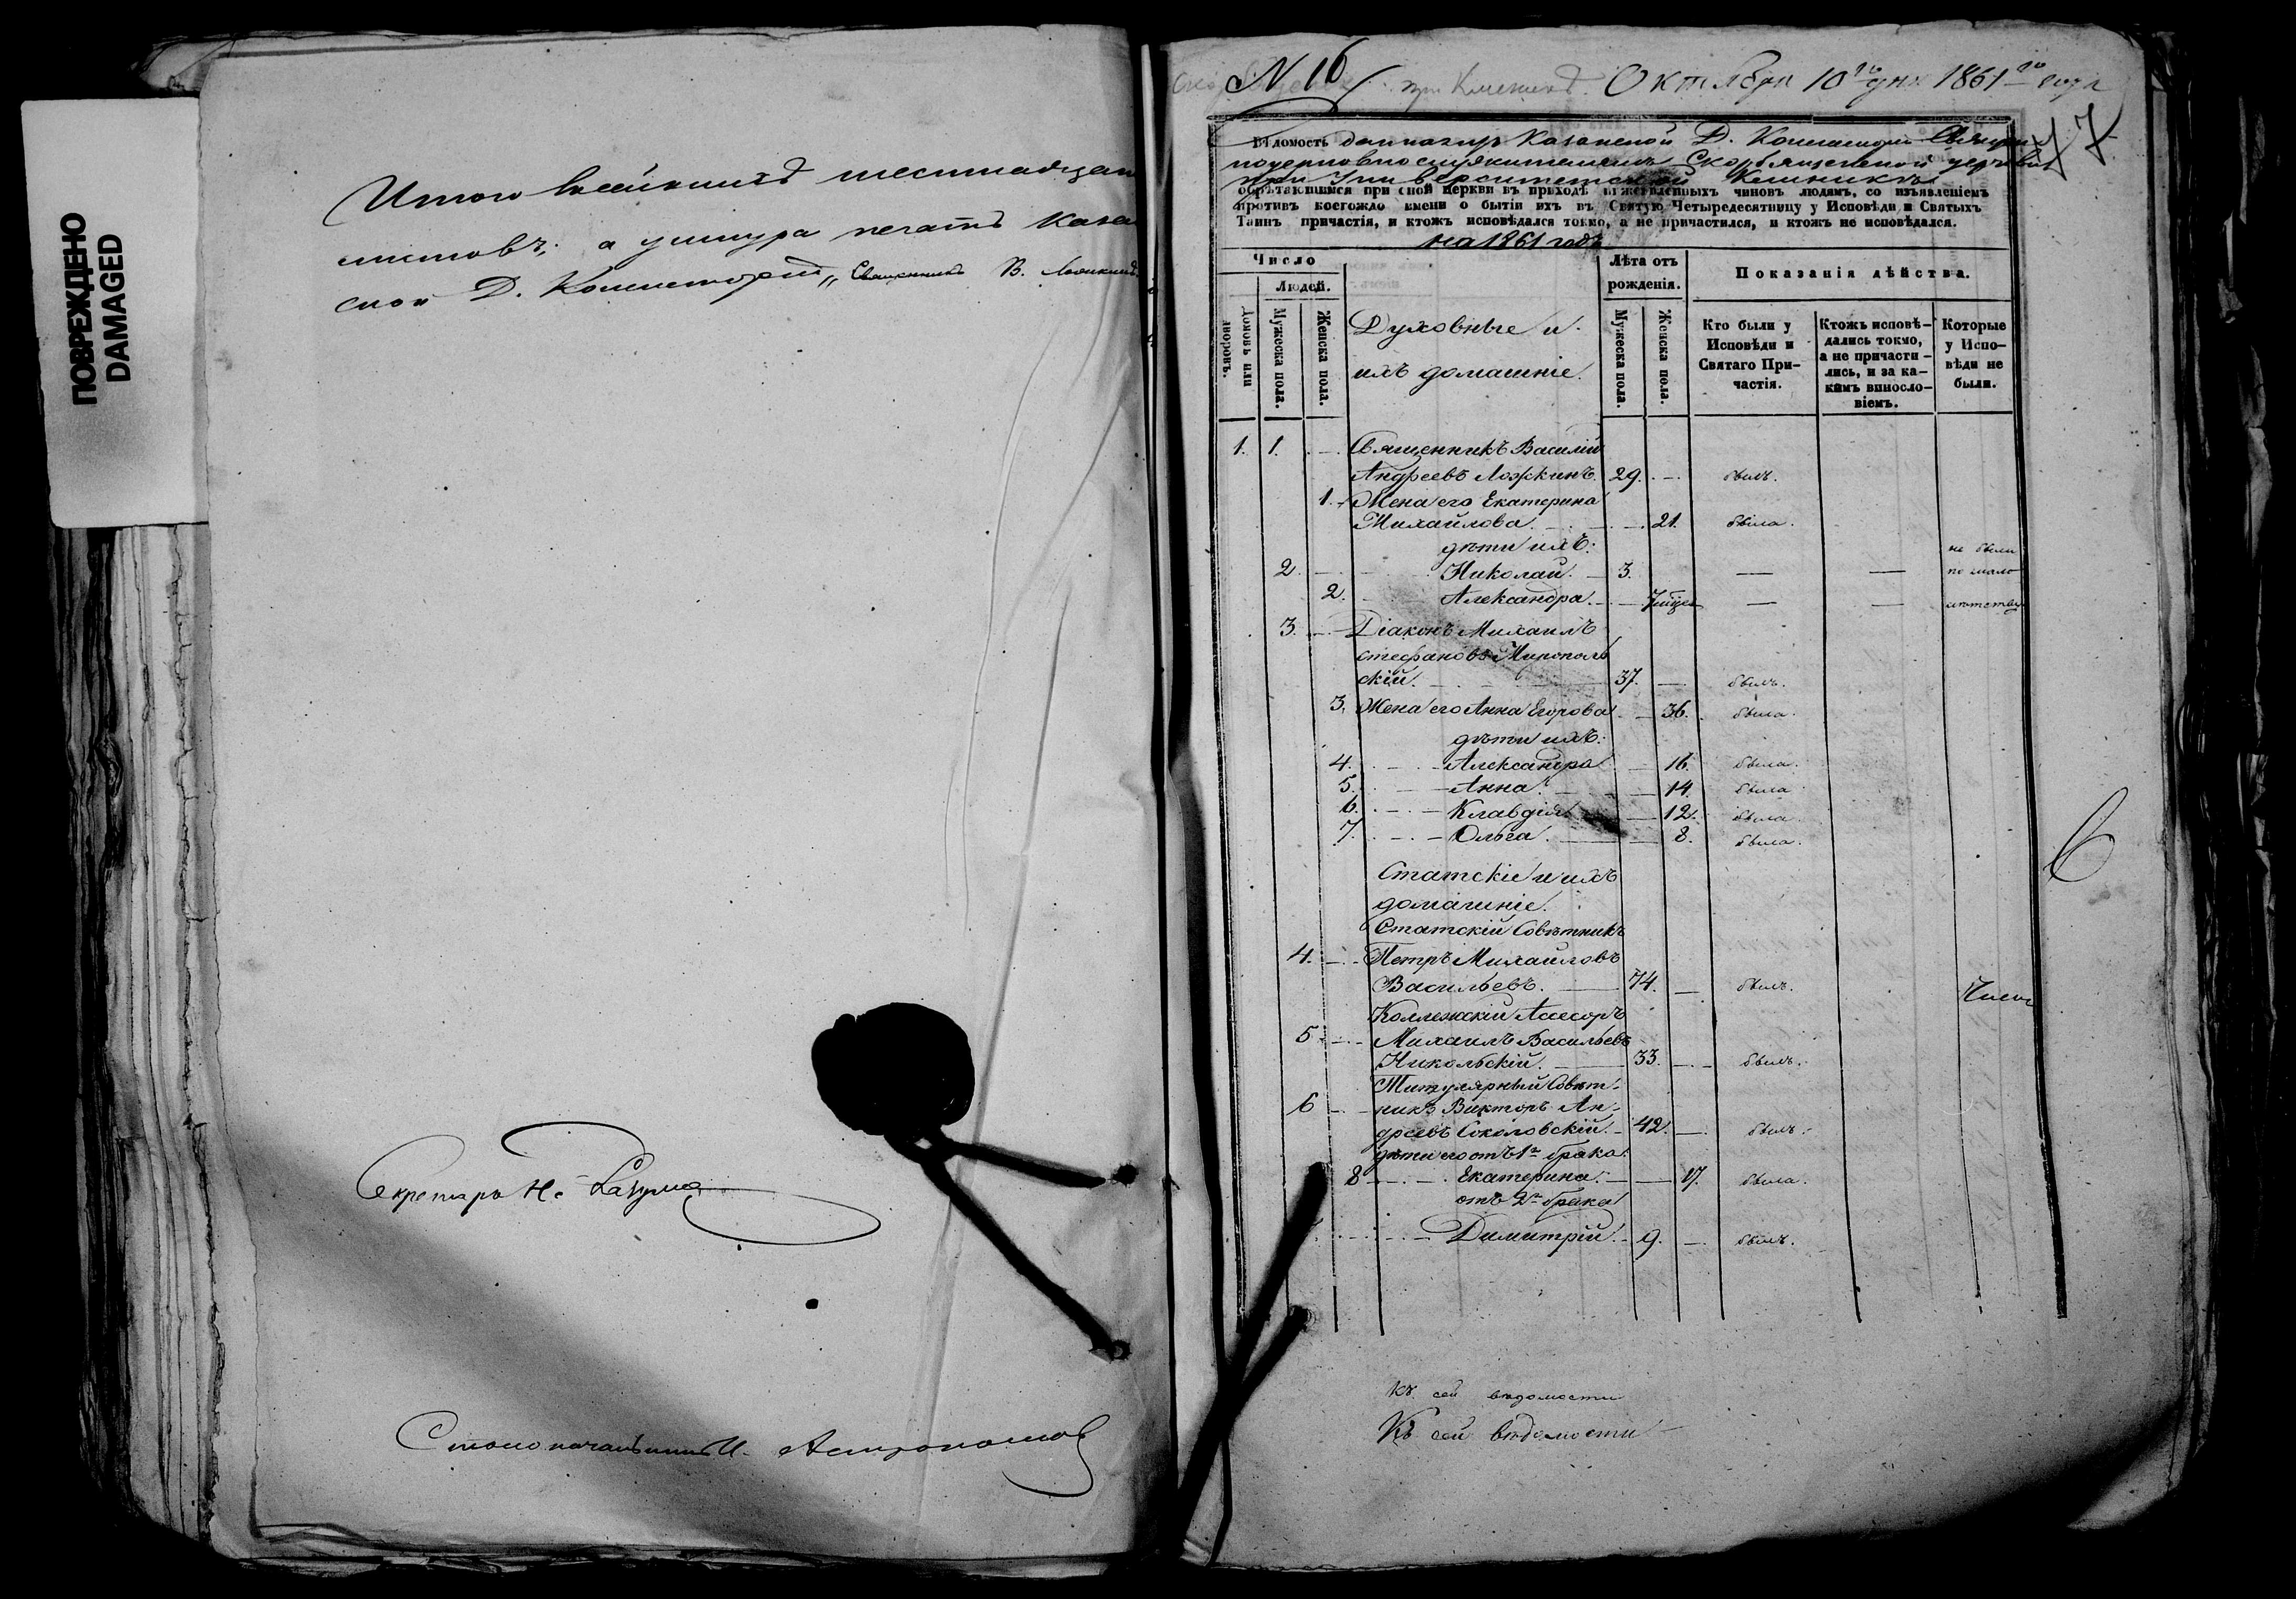 ПОВРЕЖДЕНО
DAMAGED
Итого
листовъ; а у шнура печать Каза
ской Д. Консисторіи „ Священникъ В. Ложкинъ
Секретарь Н.
Столоначальникъ И.
N 16
Октября 10го дня 1861го года
47
Вѣдомость Казанской Д.
Скорбященской церкви
при Университетской Клиникѣ
обрѣтающимся при сной церкви въ приходѣ нижеявленныхъ чиновъ людямъ, со изъявленіемъ
противъ коегождо имени о бытіи ихъ въ Святую Четыредесятницу у Исповѣди и Святыхъ
Таинъ причастія, и ктожъ исповѣдался токмо, а не причастился, и ктожъ не исповѣдался.
на 1861 годъ.
Число
Людей.
Домовъ или дворовъ.
Мужеска пола.
Женска пола.
Духовные и
ихъ домашніе.
Лѣта отъ
рожденія.
Мужеска пола.
Женска пола.
Показанія дѣйства.
Кто были у
Исповѣди и
Святаго При-
частія.
Ктожъ исповѣ-
дались токмо,
а не причасти-
лись, и за ка-
кимъ винословіемъ.
Которые
у Испо-
вѣди не
были.
1. 1. Священникъ Василій
Андреевъ Ложкинъ 29. былъ.
1. Жена его Екатерина
Михайлова. 21. была.
дѣти ихъ: не были
2. Николай. 3. — — по мало
2. Александра. 7 мѣсе — — лѣтству
3. Діаконъ Михаилъ
Стефановъ Миропольскій. 37. былъ.
3. Жена его Анна Егорова 36. была.
дѣти ихъ:
4. Александра 16. была.
5. Анна. 14. была
6. Клавдія 12. была.
7. Ольга. 8. была.
Статскіе и ихъ
домашніе.
Статскій Совѣтникъ
4. Петръ Михаиловъ
Васильевъ. 74. былъ.
Число
Коллежскій Асесоръ
5. Михаилъ Васильевъ
Никольскій. 33. былъ.
Титулярный Совѣт-
6 никъ Викторъ Ан-
дреевъ Соколовскій. 42. былъ.
дѣти его отъ 1го брака:
8 Екатерина. 17. была.
отъ 2го брака
Димитрій. 9. былъ.
Къ сей вѣдомости
Къ сей вѣдомости